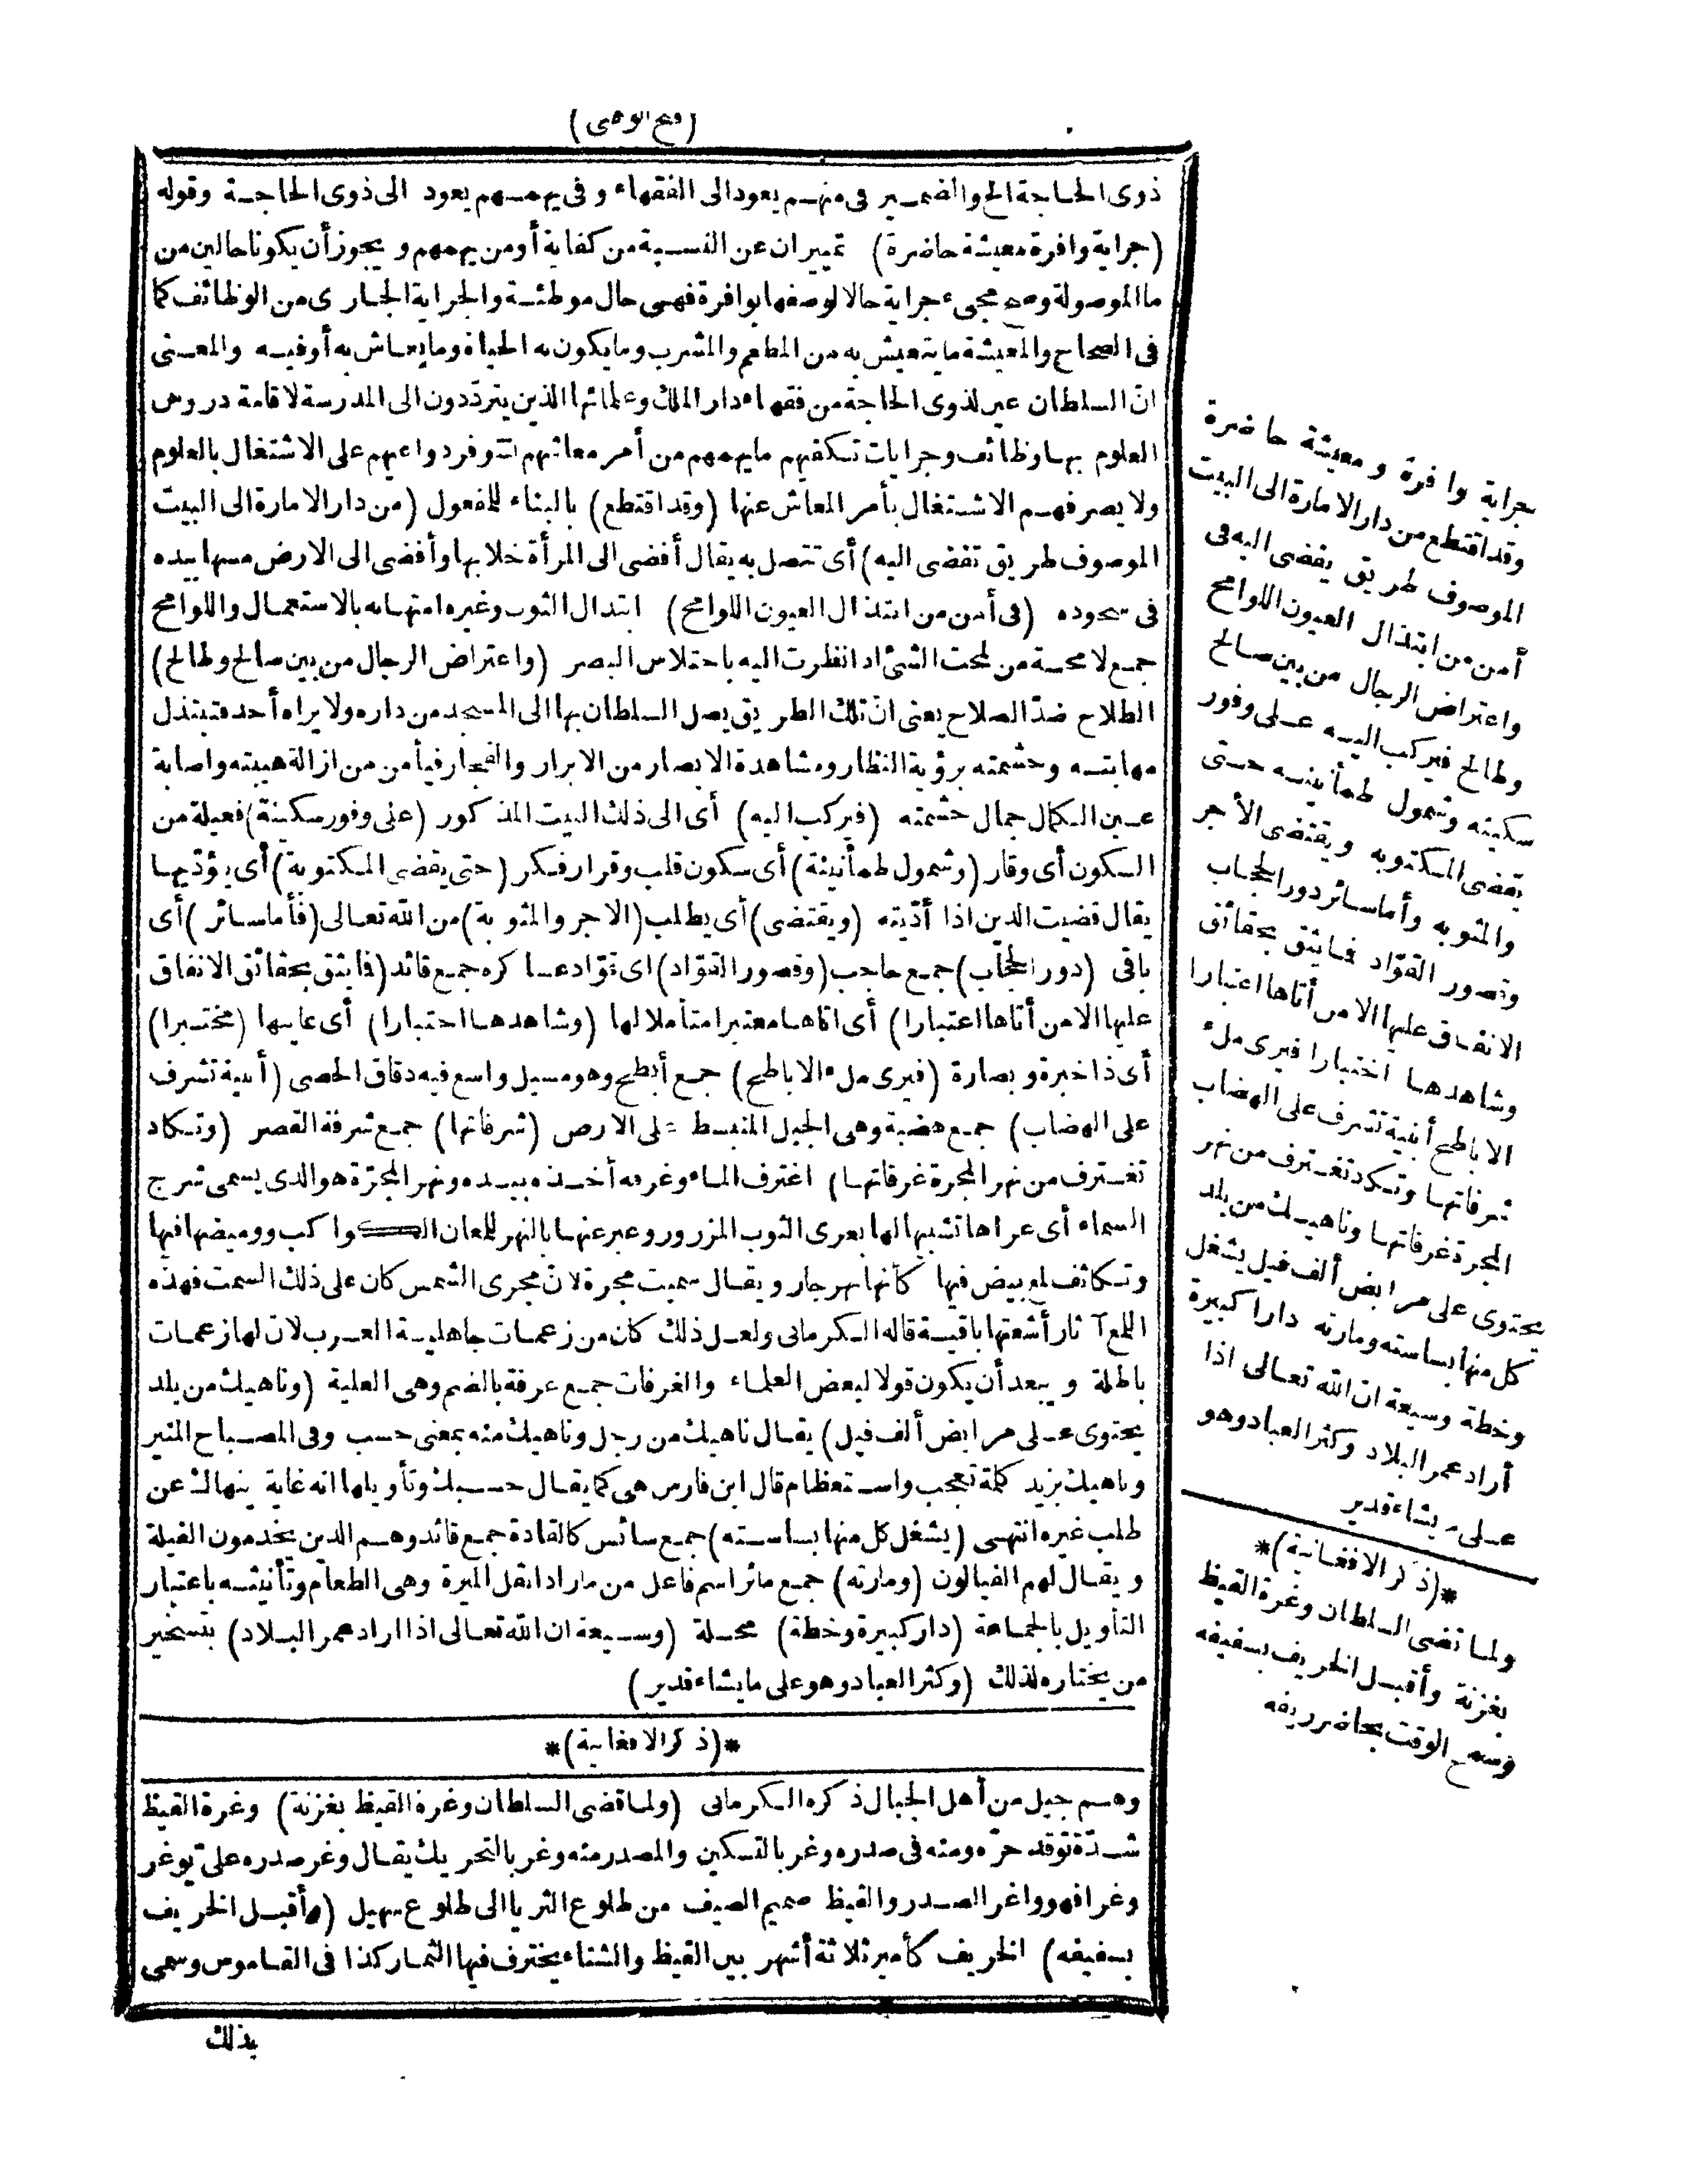 (فتح الوهبى)
ذوى الحاجة الخ والضمير فى منهم يعود الى الفقهاء وفى يهمهم يعود الى ذوى الحاجة وقوله
(جراية وافرة معيشة حاضرة) تمييزان عن النسبة من كفاية أومن يهمهم ويجوز أن يكونا حالين من
ما الموصولة وصح مجىء جراية حالا لوصفها بوافرة فهى حال موطئة والجراية الجارى من الوظائف كما
فى الصحاح والمعيشة ما يتعيش به من المطعم والمشرب وما يكون به الحياة وما يعاش به أوفيه والمعنى
انّ السلطان عين لذوى الحاجة من فقهاء دار الملك وعلمائها الذين يتردّدون الى المدرسة لاقامة دروس
العلوم بها وظائف وجرايات تكفيهم ما يهمهم من أمر معاشهم لتتوفر دواعيهم على الاشتغال بالعلوم
ولا يصرفهم الاشتغال بأمر المعاش عنها (وقد اقتطع) بالبناء للمفعول (من دار الامارة الى البيت
الموصوف طريق تفضى اليه) أى تتصل به يقال أفضى الى المرأة خلا بها وأفضى الى الارض مسها بيده
فى سجوده (فى أمن من ابتذال العيون اللوامح) ابتذال الثوب وغيره امتهانه بالاستعمال واللوامح
جمع لامحة من لمحت الشئ اذا نظرت اليه باختلاس البصر (واعتراض الرجال من بين صالح وطالح)
الطلاح ضدّ الصلاح يعنى انّ تلك الطريق يصل السلطان بها الى المسجد من داره ولا يراه أحد فتبتذل
مهابته وحشمته برؤية النظار ومشاهدة الابصار من الابرار والفجار فيأمن من ازالة هيبته واصابة
عين الكمال جمال حشمته (فيركب اليه) أى الى ذلك البيت المذكور (على وفور سكينة) فعيلة من
السكون أى وقار (وشمول طمأنينة) أى سكون قلب وقرار فكر (حتى يقضى المكتوبة) أى يؤدّيها
يقال قضيت الدين اذا أدّيته (ويقتضى) أى يطلب (الاجر والمثوبة) من الله تعالى (فأما سائر) أى
باقى (دور الحجّاب) جمع حاجب (وقصور القوّاد) اى قوّاد عساكره جمع قائد (فما يثق بحقائق الانفاق
عليها الا من أتاها اعتبارا) أى اتاها معتبرا متأملا لها (وشاهدها اختبارا) أى عاينها (مختبرا)
أى ذا خبرة وبصارة (فيرى ملء الاباطح) جمع أبطح وهو مسيل واسع فيه دقاق الحصى (أبنية تشرف
على الهضاب) جمع هضبة وهى الجبل المنبسط على الارض (شرفاتها) جمع شرفة القصر (وتكاد
تغترف من نهر المجرة غرفاتها) اغترف الماء وغرفه أخذه بيده ونهر المجرّة هو الذى يسمى شرج
السماء أى عراها تشبيها لها بعرى الثوب المزرور وعبر عنها بالنهر للمعان الكواكب ووميضها فيها
وتكاثف لمع بيض فيها كأنها نهر جار ويقال سميت مجرة لانّ مجرى الشمس كان على ذلك السمت فهذه
اللمع آثار أشعتها باقية قاله الكرمانى ولعل ذلك كان من زعمات جاهلية العرب لان لها زعمات
باطلة ويبعد أن يكون قولا لبعض العلماء والغرفات جمع غرفة بالضم وهى العلية (وناهيك من بلد
يحتوى على مرابض ألف فيل) يقال ناهيك من رجل وناهيك منه بمعنى حسب وفى المصباح المنير
وناهيك بزيد كلمة تعجب واستعظام قال ابن فارس هى كما يقال حسبك وتأويلها انه غاية ينهاك عن
طلب غيره انتهى (يشغل كل منها بساسته) جمع سائس كالقادة جمع قائد وهم الذين يخدمون الفيلة
ويقال لهم الفيالون (ومارته) جمع مائر اسم فاعل من مار اذا نقل الميرة وهى الطعام وتأنيثه باعتبار
التأويل بالجماعة (دار كبيرة وخطة) محلة (وسيعة ان الله تعالى اذا اراد عمر البلاد) بتسخير
من يختاره لذلك (وكثر العباد وهو على ما يشاء قدير)
*(ذكر الافغانية)*
وهم جيل من أهل الجبال ذكره الكرمانى (ولما قضى السلطان وغرة القيظ بغزنة) وغرة القيظ
شدّة توقد حرّه ومنه فى صدره وغر بالتسكين والمصدر منه وغر بالتحريك يقال وغر صدره علىّ يوغر
وغرا فهو واغر الصدر والقيظ صميم الصيف من طلوع الثريا الى طلوع سهيل (وأقبل الخريف
بسفيفه) الخريف كأمير ثلاثة أشهر بين القيظ والشتاء يخترف فيها الثمار كذا فى القاموس وسمى
بذلك
جراية وافرة ومعيشة حاضرة
وقد اقتطع من دار الامارة الى البيت
الموصوف طريق يفضى اليه فى
أمن من ابتذال العيون اللوامح
واعتراض الرجال من بين صالح
وطالح فيركب اليه على وفور
سكينته وشمول طمأنينته حتى
يقضى المكتوبه ويقتضى الأجر
والمثوبه وأما سائر دور الحجاب
وقصور القوّاد فما يثق بحقائق
الانفاق عليها الا من أتاها اعتبارا
وشاهدها اختبارا فيرى ملء
الاباطح أبنية تشرف على الهضاب
شرفاتها وتكاد تغترف من نهر
المجرة غرفاتها وناهيك من بلد
يحتوى على مرابض ألف فيل يشغل
كل منها بساسته ومارته دارا كبيرة
وخطة وسيعة ان الله تعالى اذا
أراد عمر البلاد وكثر العباد وهو
على ما يشاء قدير
*(ذكر الافغانية)*
ولما قضى السلطان وغرة القيظ
بغزنة وأقبل الخريف بسفيفه
وسمح الوقت بحاضر ريفه